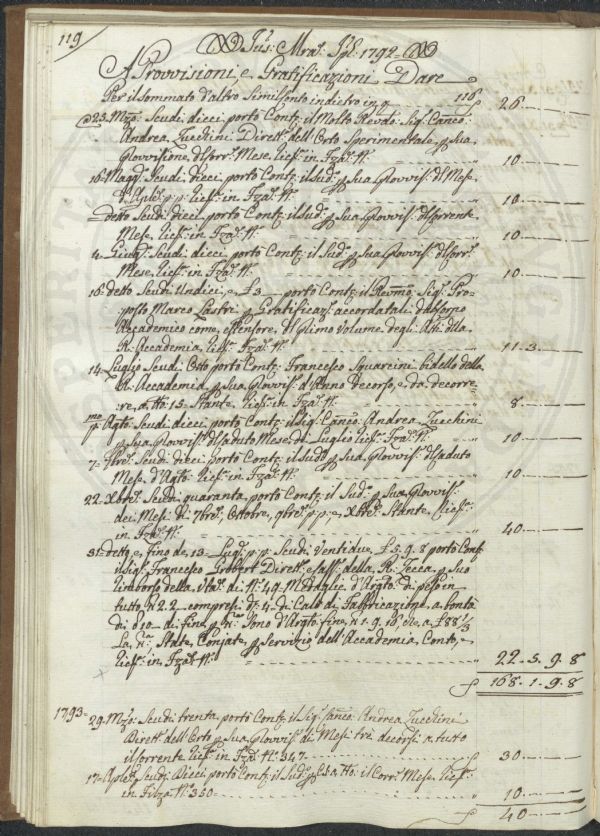 119
Jus: Mrae: Spl: 1792
A Provvisioni, e Gratificazioni Dare
Per il Sommato d'altro Simil Conto indietro in 116 26.
23. Mzo: Scudi dieci portò Contj: il Molto Revdo: Sig: Canco:
Andrea Zucchini Dirett: dell'Orto Sperimentale p Sua
Provvisione dl corr: Mese, Ricf: in Fza: N: 10.
16. Magg: Scudi dieci portò Contj: il Sud: p Sua Provvis: dl Mese
d'Aple: p:p: Ricf: in Fza: N: 10.
detto Scudi dieci portò Contj: il Sud: p Sua Provvis: dl corrente
Mese, Ricf: in Fza: N: 10.
4. Giug: Scudi dieci portò Contj: il Sud: p Sua Provvis: dl corr:
Mese, Ricf: in Fza: N: 10.
16. detto Scudi Undici, e £ 3 portò Contj: il Revmo: Sig: Pro-
posto Marco Lastri p Gratificaz: accordatali dal Corpo
Accademico come, estensore, dl primo Volume degli Atti dlla
R: Accademia, Ricf: Fza: N: 11.3.
14. Luglio Scudi Otto portò Contj: Francesco Squarcini bidello della
R: Accademia p Sua Provvis: d'Anno decorso, e da decorre-
re, a tto 15. Stante, Ricf: in Fza: N: 8.
pmo Agto: Scudi dieci portò Contj: il Sig: Canco: Andrea Zucchini
p Sua Provvis: dl caduto Mese di Luglio Ricf: Fza: N: 10.
7. 7bre: Scudi dieci portò Contj: il Sud: p Sua Provvis: dl caduto
Mese d'Agto: Ricf: in Fza: N: 10.
22. Xbre: Scudi quaranta portò Contj: il Sud: p Sua Provvis:
dei Mesi di 7bre, Ottobre, 9bre: p:p:, e Xbre: Stante, Ricf:
in Fza: N: 40.
31. detto, e fino de 13. Lug: p:p: Scudi Ventidue, £ 5.9.8 portò Contj:
il Sig: Francesco Grobert Dirett: e Cass: della R: Zecca, p Suo
rimborso della Vta: di N: 49. Medaglie d'Argto: di peso in
tutto £ 2.2. compresi d: 4 di Calo di Fabbricazione, a bontà
di d 10 di fine, p
La, Stdte, Conjate, p Servizio dell'Accademia, Conto, e
Ricf: in Fza: N: 22.5.9.8
168.1.9.8
1793. 29. Mzo: Scudi trenta portò Contj: il Sig: Canco: Andrea Zucchini
Dirett: dell'Orto p Sua Provvis: di Mesi tre decorsi a tutto
il corrente, Ricf: in Fza: N: 347. 30.
17. Aple: Scudi Dieci portò Contj: il Sud: p Esa tto: il Corr: Mese, Ricf:
in Filza N: 350. 10.
40.